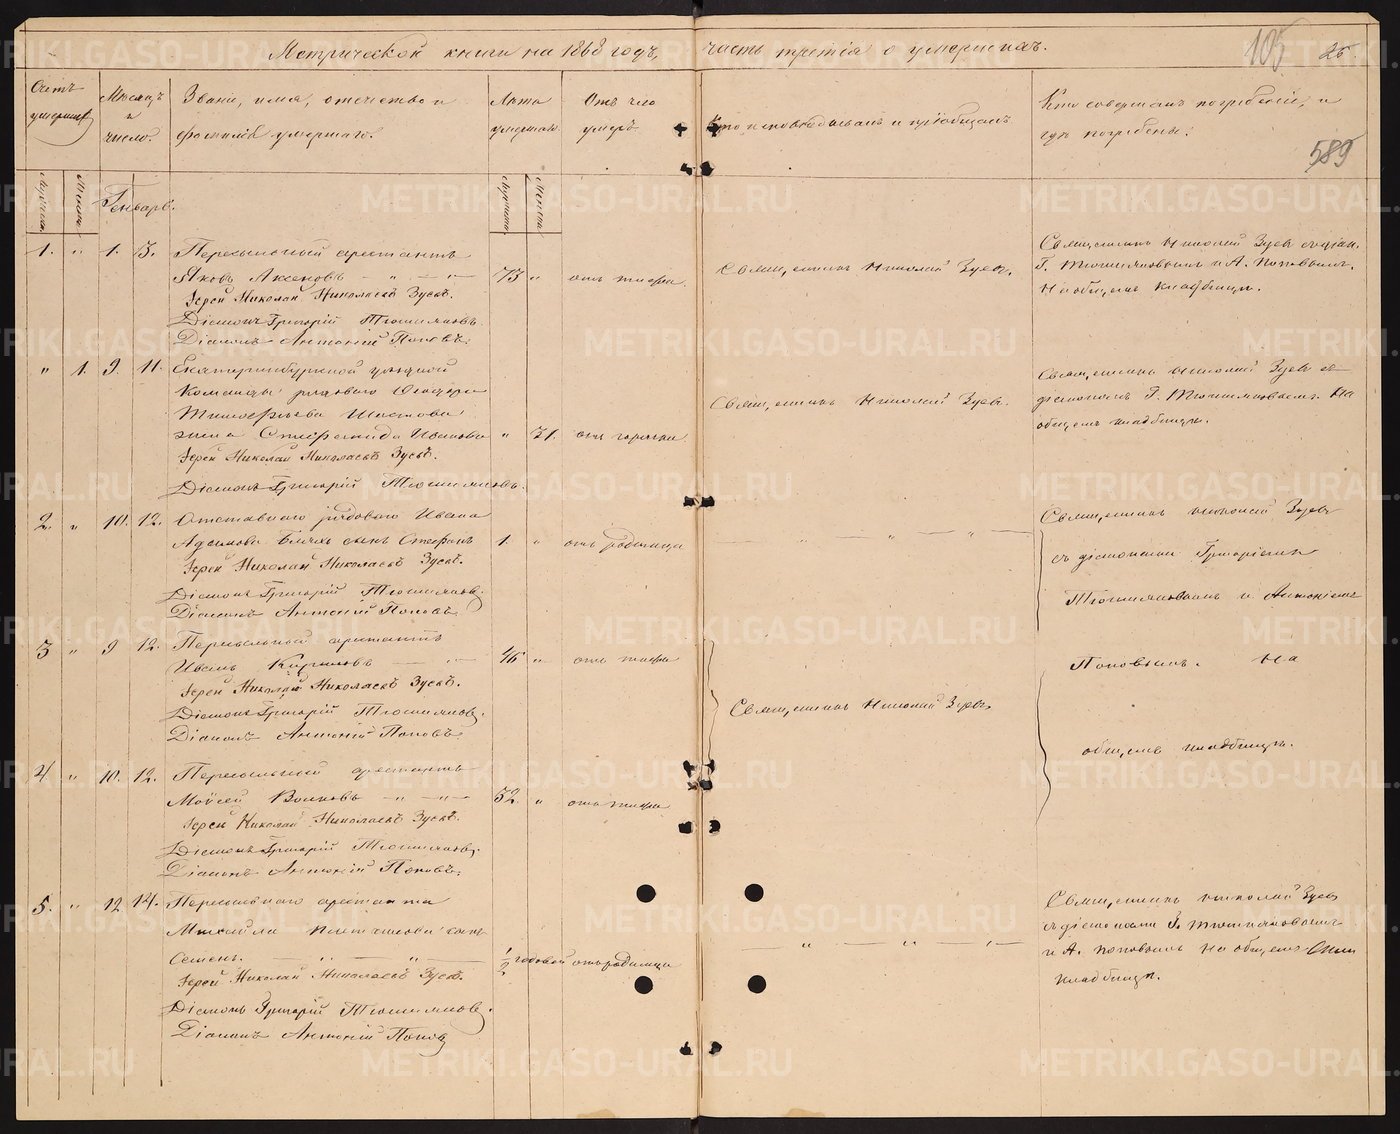 Метрической книги на 1868 годъ, часть третія о умершихъ.
105
26.
Счетъ умершихъ
Мѣсяцъ и число.
Званіе, имя, отчество и фамилія умершаго.
Лѣта умершаго.
Отъ чего умеръ.
Кто исповѣдывалъ и пріобщалъ.
Кто совершалъ погребеніе, и гдѣ погребены.
589
Январь.
1. " 1. 3. Пересыльный арестантъ
Яковъ Аксеновъ " 73 " отъ тифа.
Іерей Николай Николаевъ Зуевъ.
Діаконъ Григорій
Діаконъ Антоній Поповъ.
Священникъ Николай Зуевъ.
Священникъ Николай Зуевъ
и А. Поповымъ.
На общемъ кладбищѣ.
" 1. 9. 11. Екатеринбургской уѣздной
команды рядоваго
жена Стефанида Иванова " 31. отъ горячки
Іерей Николай Николаевъ Зуевъ.
Діаконъ Григорій
Священникъ Николай Зуевъ.
Священникъ Николай Зуевъ съ
діакономъ Г. На
общемъ кладбищѣ.
2. " 10. 12. Отставнаго рядоваго Ивана
сынъ Стефанъ 1. " отъ родимца
Іерей Николай Николаевъ Зуевъ.
Діаконъ Григорій
Діаконъ Антоній Поповъ
Священникъ Николай Зуевъ
съ діаконами Григоріемъ
и Антоніемъ
Поповымъ. На
общемъ кладбищѣ.
3 " 9 12. Пересыльный арестантъ
Иванъ Кириловъ 46 " отъ тифа
Іерей Николай Николаевъ Зуевъ.
Діаконъ Григорій
Діаконъ Антоній Поповъ
Священникъ Николай Зуевъ
4 " 10. 12. Пересыльный арестантъ
Моѵсей Волковъ 52. " отъ тифа
Іерей Николай Николаевъ Зуевъ.
Діаконъ Григорій
Діаконъ Антоній Поповъ.
5. " 12 14. Пересыльнаго арестанта
сынъ
Семенъ. 1/2 годовой отъ родимца
Іерей Николай Николаевъ Зуевъ.
Діаконъ Григорій
Діаконъ Антоній Поповъ
Священникъ Николай Зуевъ
съ діаконами Г.
и А. Поповымъ на общемъ
кладбищѣ.
METRIKI.GASO-URAL.RU